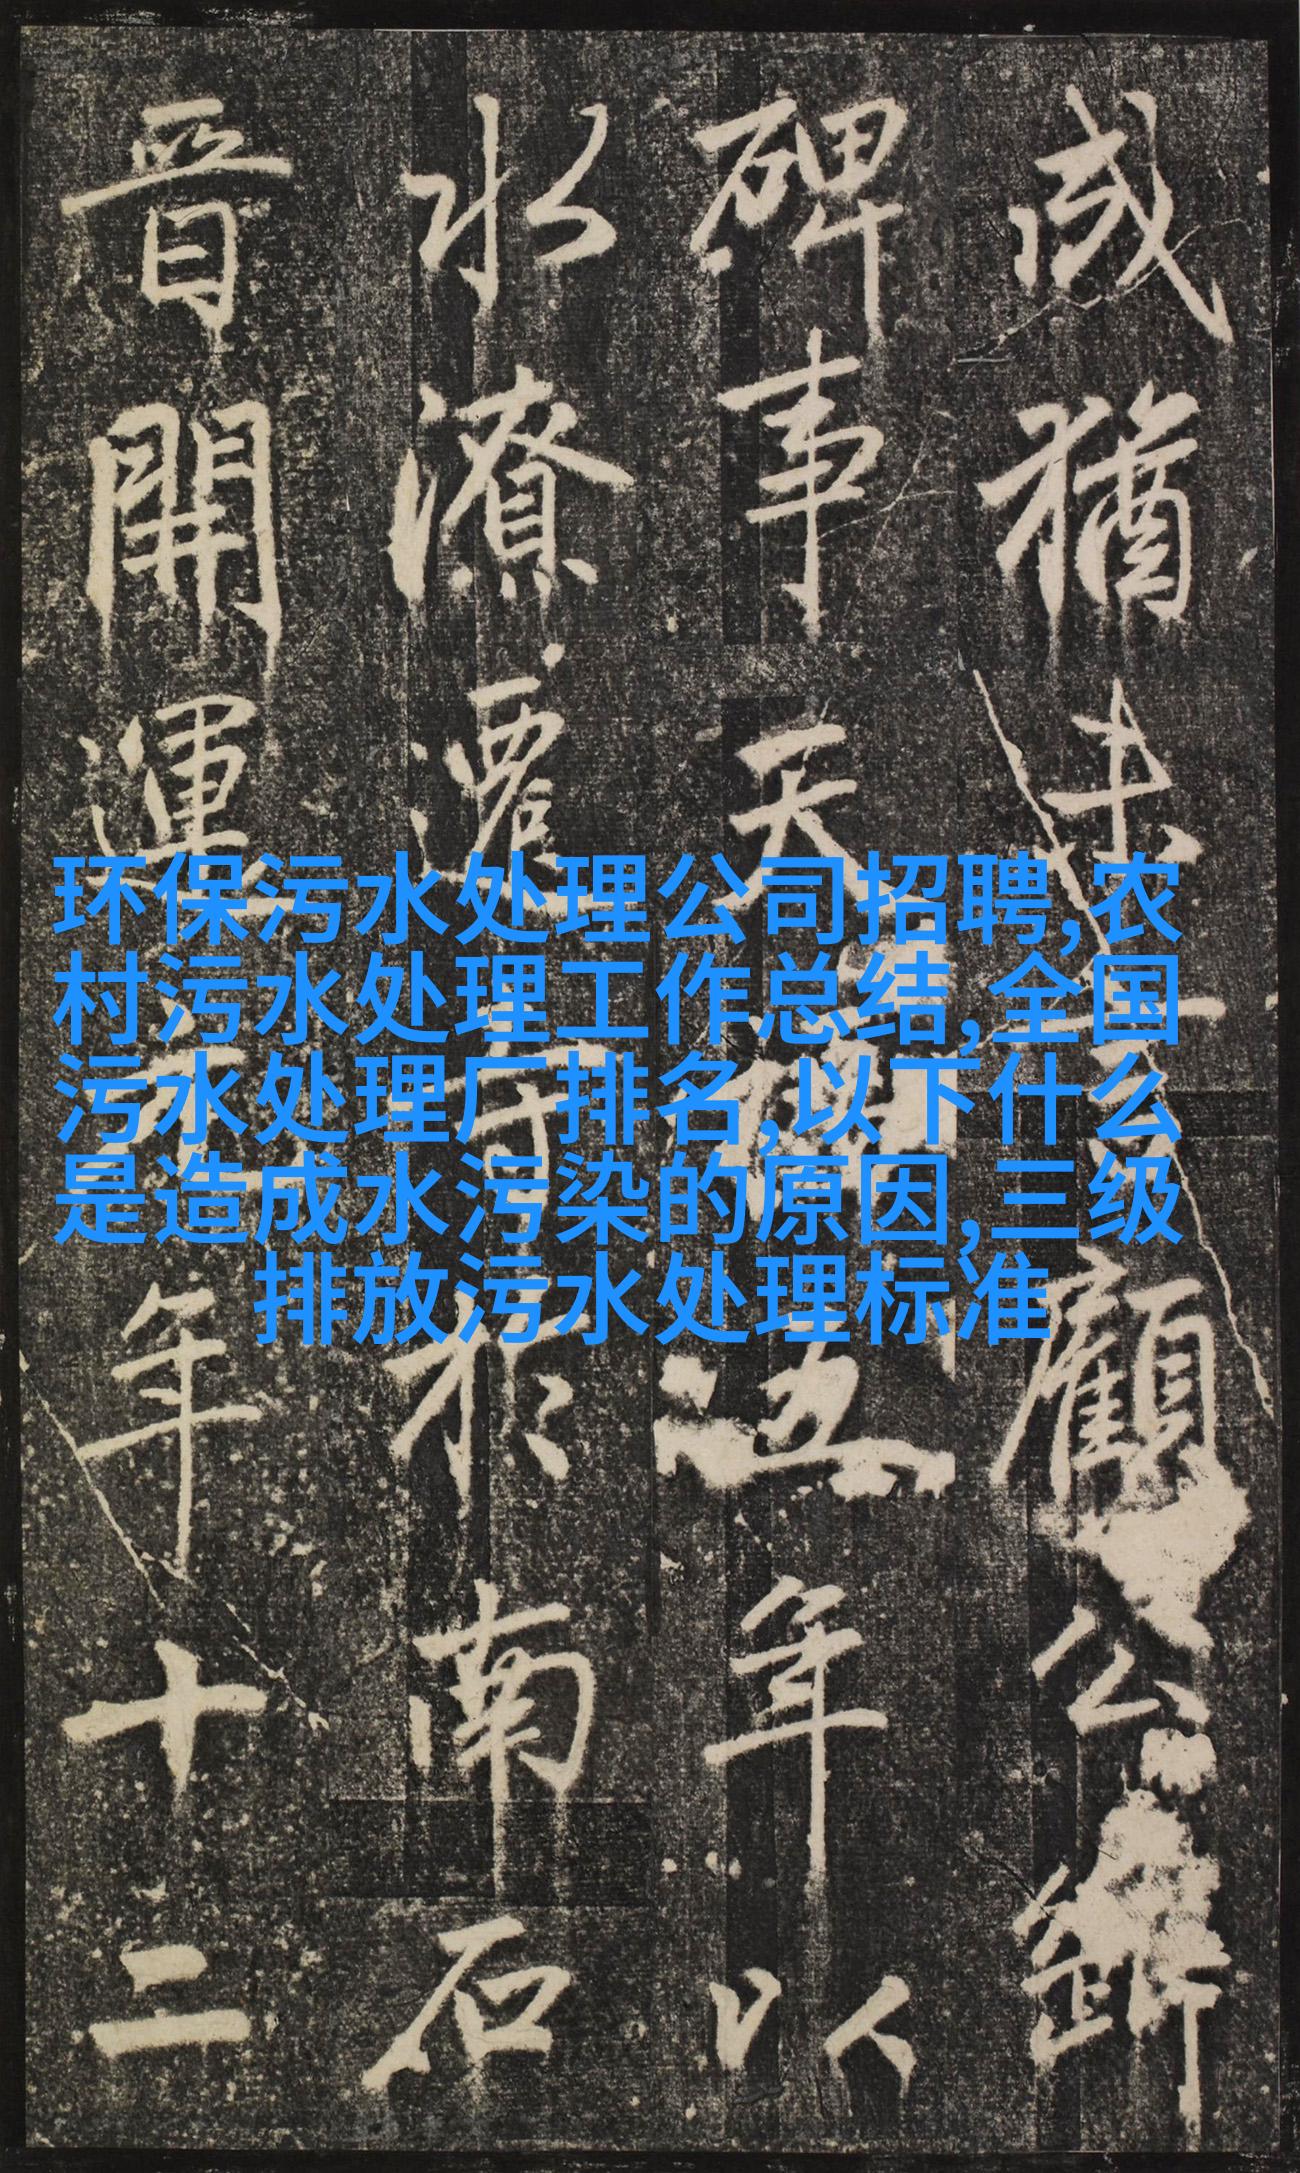 咸猶未□□顧公餠
碑事天禧五年以
水潦遷□於南石
晉開運□年十二
环保污水处理公司招聘,农
村污水处理工作总结,全国
污水处理厂排名,以下什么
是造成水污染的原因,三级
排放污水处理标准